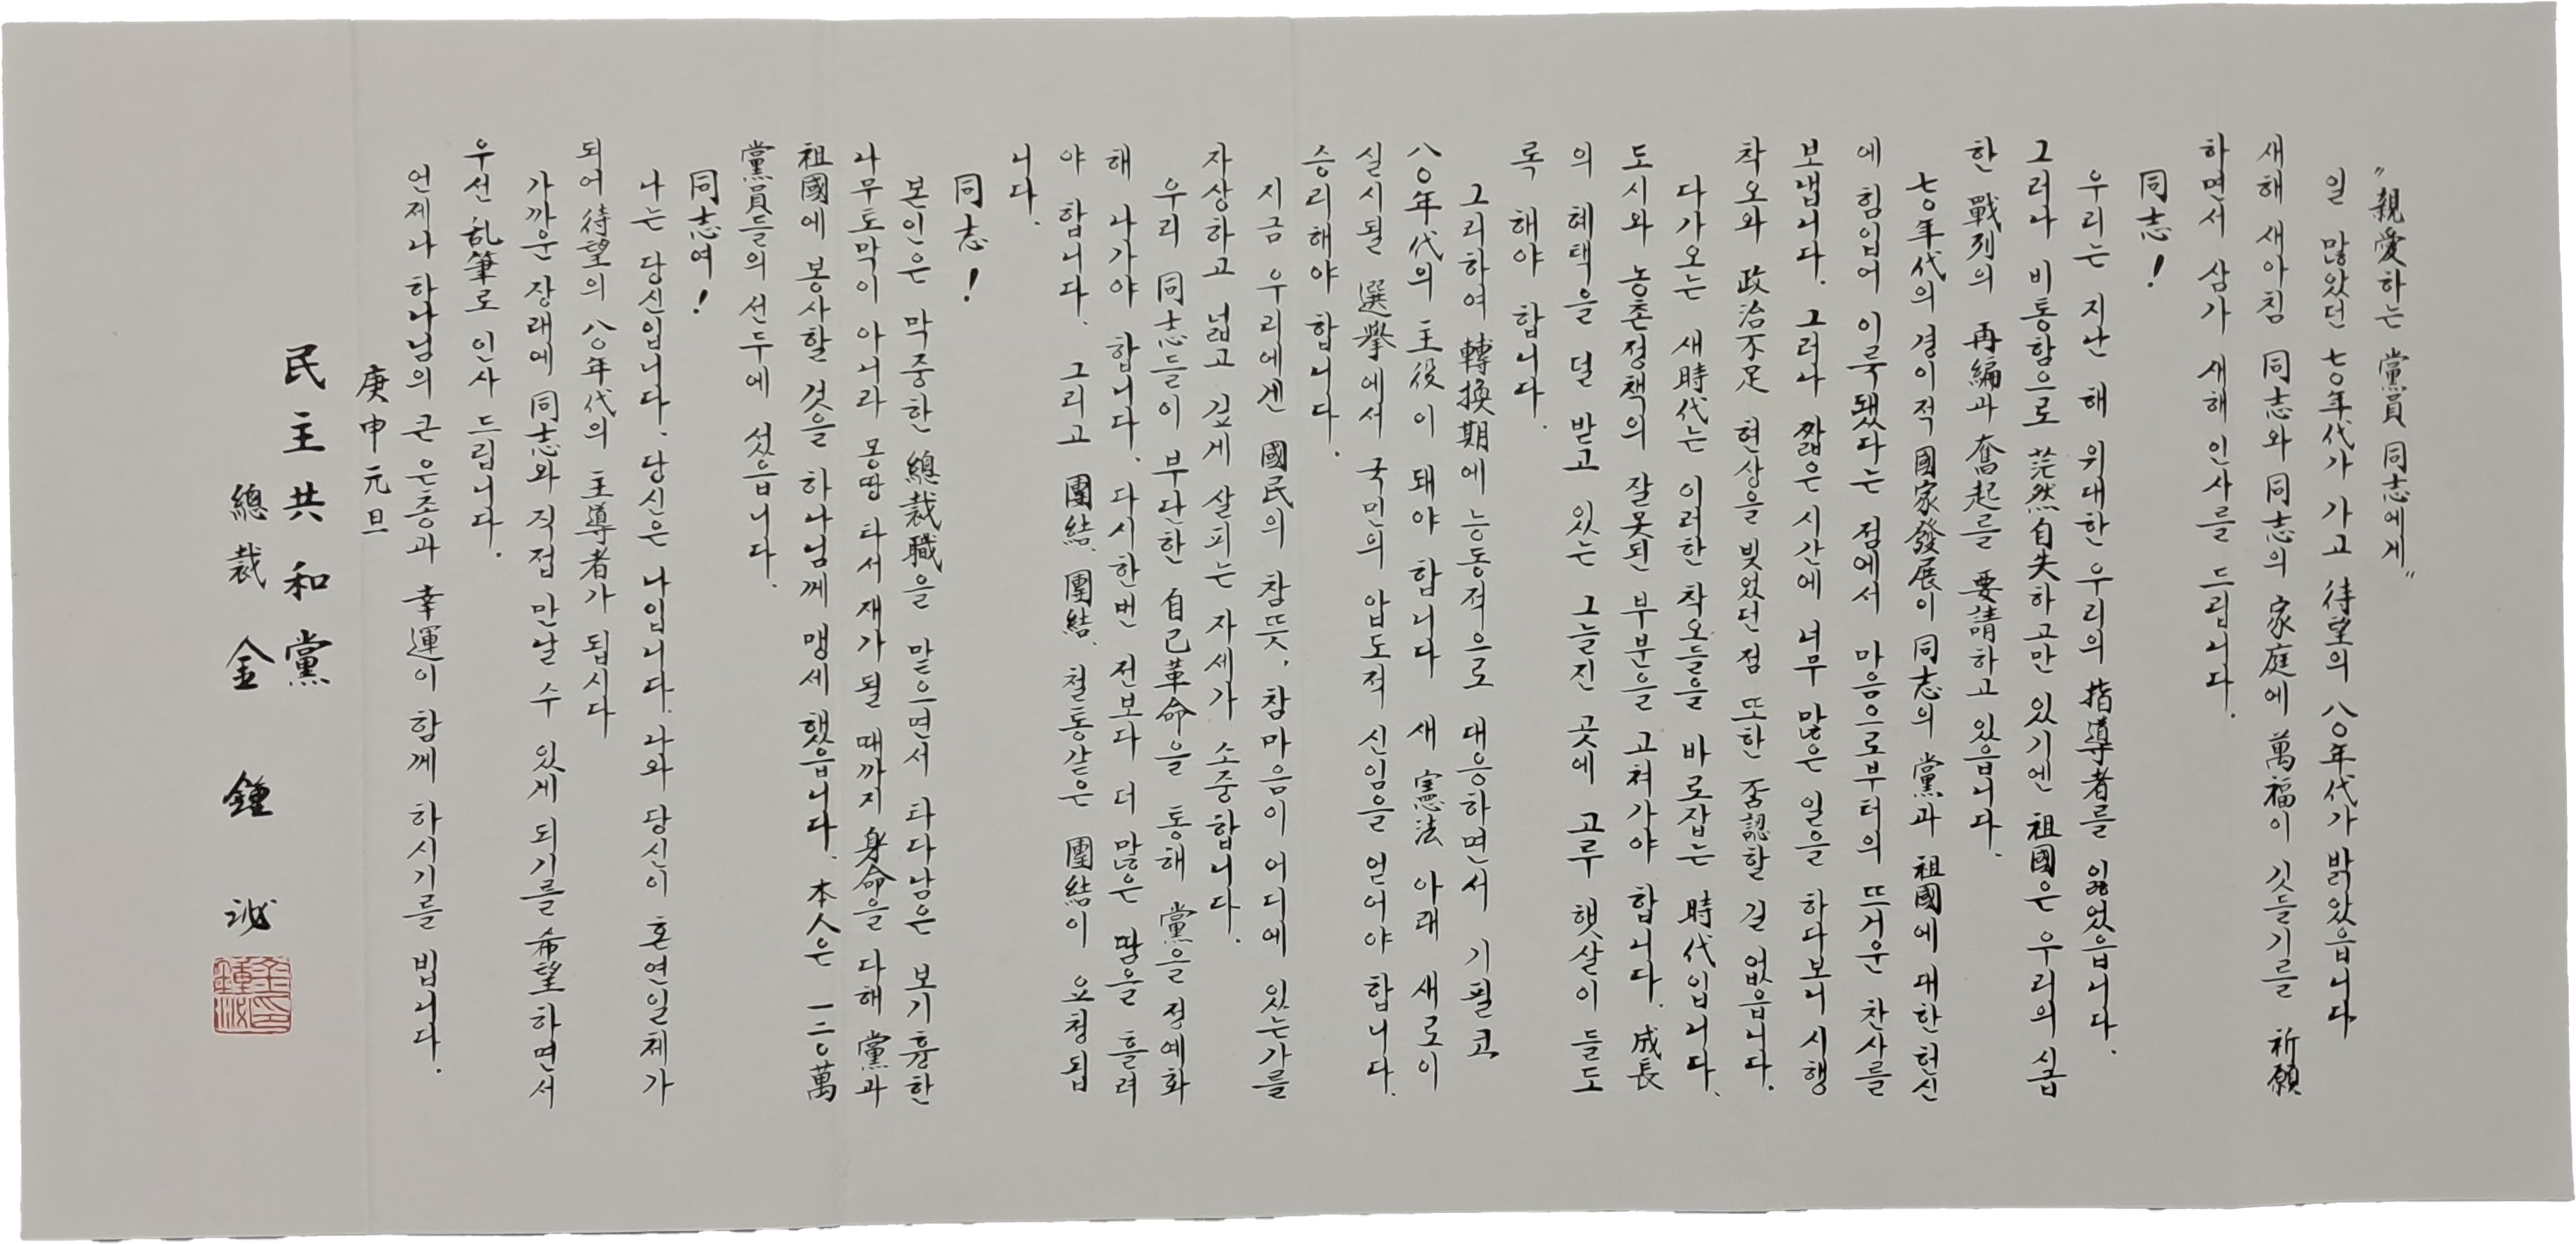 "親愛하는 黨員 同志에게"
일 많았던 七〇年代가 가고 待望의 八〇年代가 밝았읍니다
새해 새아침 同志와 同志의 家庭에 萬福이 깃들기를 祈願
하면서 삼가 새해 인사를 드립니다.
同志!
우리는 지난 해 위대한 우리의 指導者를 잃었읍니다.
그러나 비통함으로 茫然自失하고만 있기엔 祖國은 우리의 시급
한 戰列의 再編과 奮起를 要請하고 있읍니다.
七〇年代의 경이적 國家發展이 同志의 黨과 祖國에 대한 헌신
에 힘입어 이룩됐다는 점에서 마음으로부터의 뜨거운 찬사를
보냅니다. 그러나 짧은 시간에 너무 많은 일을 하다보니 시행
착오와 政治不足 현상을 빚었던 점 또한 否認할 길 없읍니다.
다가오는 새 時代는 이러한 착오들을 바로잡는 時代입니다.
도시와 농촌정책의 잘못된 부분을 고쳐가야 합니다. 成長
의 혜택을 덜 받고 있는 그늘진 곳에 고루 햇살이 들도
록 해야 합니다.
그리하여 轉換期에 능동적으로 대응하면서 기필코
八〇年代의 主役이 돼야 합니다 새 憲法 아래 새로이
실시될 選擧에서 국민의 압도적 신임을 얻어야 합니다.
승리해야 합니다.
지금 우리에겐 國民의 참뜻, 참마음이 어디에 있는가를
자상하고 넓고 깊게 살피는 자세가 소중합니다.
우리 同志들이 부단한 自己革命을 통해 黨을 정예화
해 나가야 합니다. 다시한번 전보다 더 많은 땀을 흘려
야 합니다. 그리고 團結, 團結, 철통같은 團結이 요청됩
니다.
同志!
본인은 막중한 總裁職을 맡으면서 타다남은 보기 흉한
나무토막이 아니라 몽땅 타서 재가 될 때까지 身命을 다해 黨과
祖國에 봉사할 것을 하나님께 맹세 했읍니다. 本人은 一二〇萬
黨員들의 선두에 섰읍니다.
同志여!
나는 당신입니다. 당신은 나입니다. 나와 당신이 혼연일체가
되어 待望의 八〇年代의 主導者가 됩시다
가까운 장래에 同志와 직접 만날 수 있게 되기를 希望하면서
우선, 乱筆로 인사 드립니다.
언제나 하나님의 큰 은총과 幸運이 함께 하시기를 빕니다.
庚申元旦
民主共和黨
總裁 金鍾泌
金鍾泌印